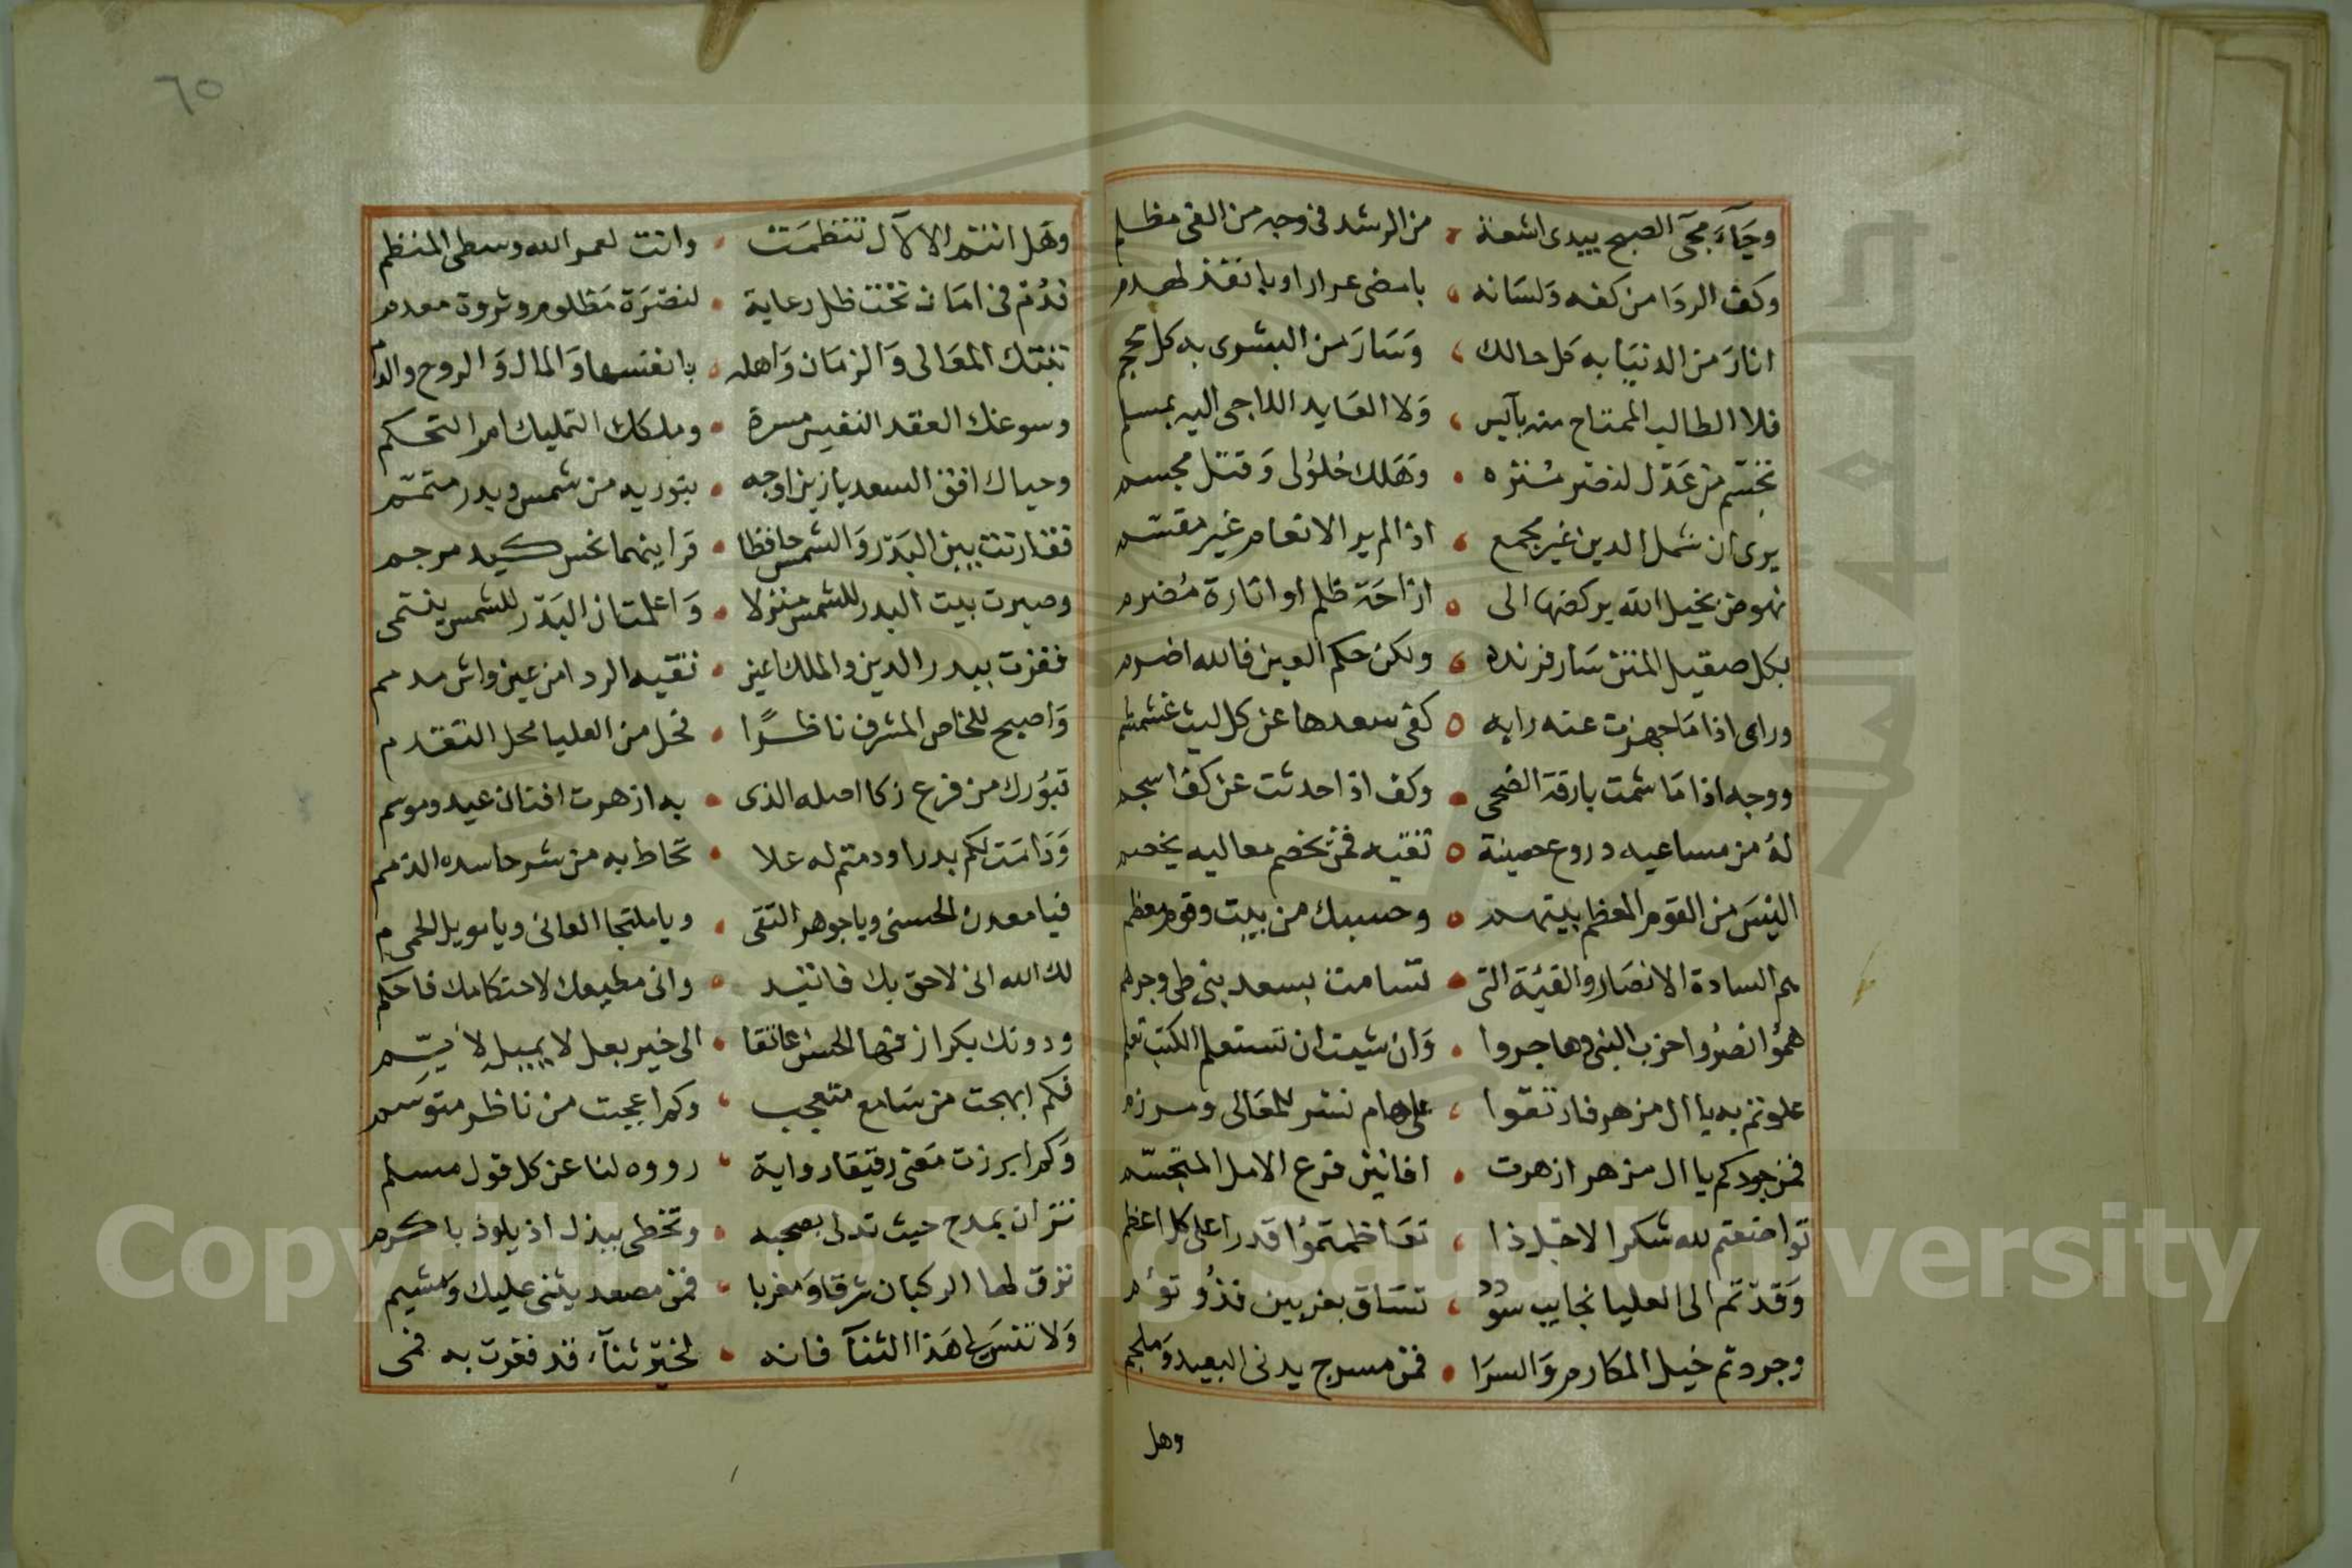 وجآء مجى الصبح يبدى اشعة من الرشد فى وجه من الغى مظلم
وكف الردا من كفه ولسانه بامضى عرار او بانفذ لهدم
انار من الدنيا به كل حالك وسار من البشرى به كل محجم
فلا الطالب الممتاح منه بآيس ولا العايد اللاجى اليه بمسلم
تجسم من عدل لذهر منزه وهلك خلولى وقتل مجسم
يرى ان شمل الدين غير مجمع اذا لم ير الانعام غير مقسم
نهوض بخيل الله يركضها الى ازاحة ظلم او اثارة مضرم
بكل صقيل المتن سار فرنده ولكن حكم العين فالله اضرم
وراى اذا ما جهزت عنه رايه كفى سعدها عن كل ليث غشمشم
ووجه اذا ما شمت بارقة الضحى وكف اذا حدثت عن كف اسجم
له من مساعيه دروع حصينة تقيه فمن يخصم معاليه يخصم
اليس من القوم المعظم بيتهم وحسبك من بيت وقوم معظم
هم السادة الانصار والفئة التى تسامت بسعد بنى طى وجرهم
همؤا نصروا حزب النبى وهاجروا وان شيت ان تستعلم الكتب تعلم
علوتم به يا ال مزهر فارتقوا على هام نسر للمعالى ومرزم
فمن جودكم يا ال مزهر ازهرت افانين فرع الامل المتجسم
تواضعتم لله شكرا لاجل ذا تعاظمتموا قدرا على كل اعظم
وقدتم الى العليا نجايب سؤدد تساق بغربين فذ وتوءم
وجردتم خيل المكارم والسرا فمن مسرج يدنى البعيد وملجم
وهل
٦٥
وهل انتم الا لآل تنظمت وانت لعمر الله وسطى المنظم
فدم فى امان تحت ظل رعاية لنصرة مظلوم وثروة معدم
تبتك المعالى والزمان واهله بانفسها والمال والروح والدم
وسوغك العقد النفيس مسرة وملكك التمليك امر التحكم
وحياك افق السعد يا زين اوجه بنوريه من شمس وبدر متمم
فقارنت بين البدر والشمس حافظا قرا بينهما نحس كيد مرجم
وصيرت بيت البدر للشمس منزلا واعلمت ان البدر للشمس ينتمى
ففزت ببدر الدين والملك اعين تقيه الردا من عين واش مدمم
واصبح للخاص المشرف ناظرًا فحل من العليا محل التقدم
تبورك من فرع زكا اصله الذى به ازهرت افنان عيد وموسم
ودامت لكم بدرا ودمتم له علا تحاط به من شر حاسده الذمم
فيا معدن الحسنى ويا جوهر التقى ويا ملتجا العانى ويا مويل الحمى
لك الله انى لاحق بك فاتئد وانى مطيعك لاحتكامك فاحكم
ودونك بكرا زفها الحسن عاتقا الى خير بعل لا يميل لايم
فكم ابهجت من سامع متعجب وكم اعجبت من ناظر متوسم
وكم ابرزت معنى رقيقا رواية رووه لنا عن كل قول مسلم
تزان بمدح حيث تدلى بصحبه وتخطى ببذل اذ يلوذ باكرم
تزق لها الركبان شرقا ومغربا فمن مصعد يثنى عليك ومشيم
ولا تنس لى هذا الثنآ فانه لخير ثنآء قد فغرت به فمى
Copyright © King Saud University